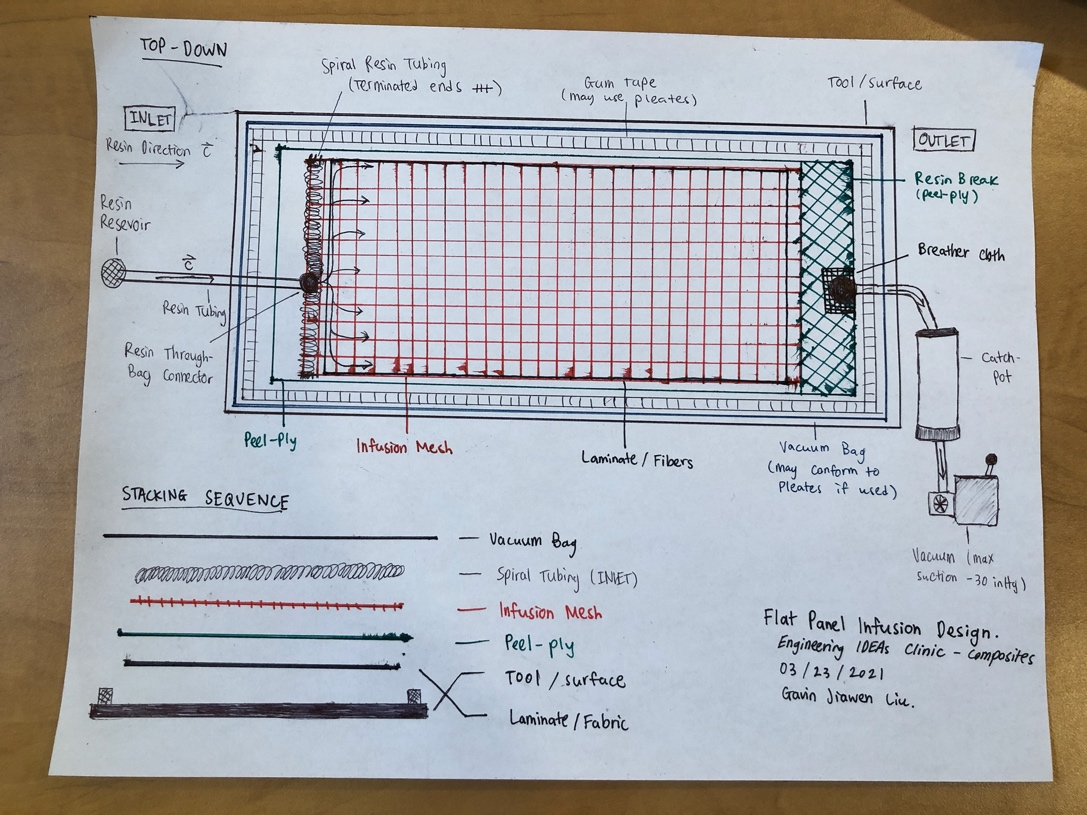 TOP-DOWN
Spiral Resin Tubing
(Terminated ends +++)
Gum tape
(may use pleates)
Tool/surface
INLET
Resin Direction c
OUTLET
Resin Break
(peel-ply)
Resin
Resevoir
c
Breather cloth
Resin Tubing
Resin Through-
Bag Connector
Catch-
pot
Peel-Ply
Infusion Mesh
Laminate / Fibers
Vacuum Bag
(may conform to
Pleates if used)
Vacuum (max
suction -30 inHg)
STACKING SEQUENCE
Vacuum Bag
Spiral Tubing (INLET)
Infusion Mesh
Peel-ply
Tool / surface
Laminate / Fabric
Flat Panel Infusion Design.
Engineering IDEAs Clinic - Composites
03 / 23 / 2021
Gavin Jiawen Liu.